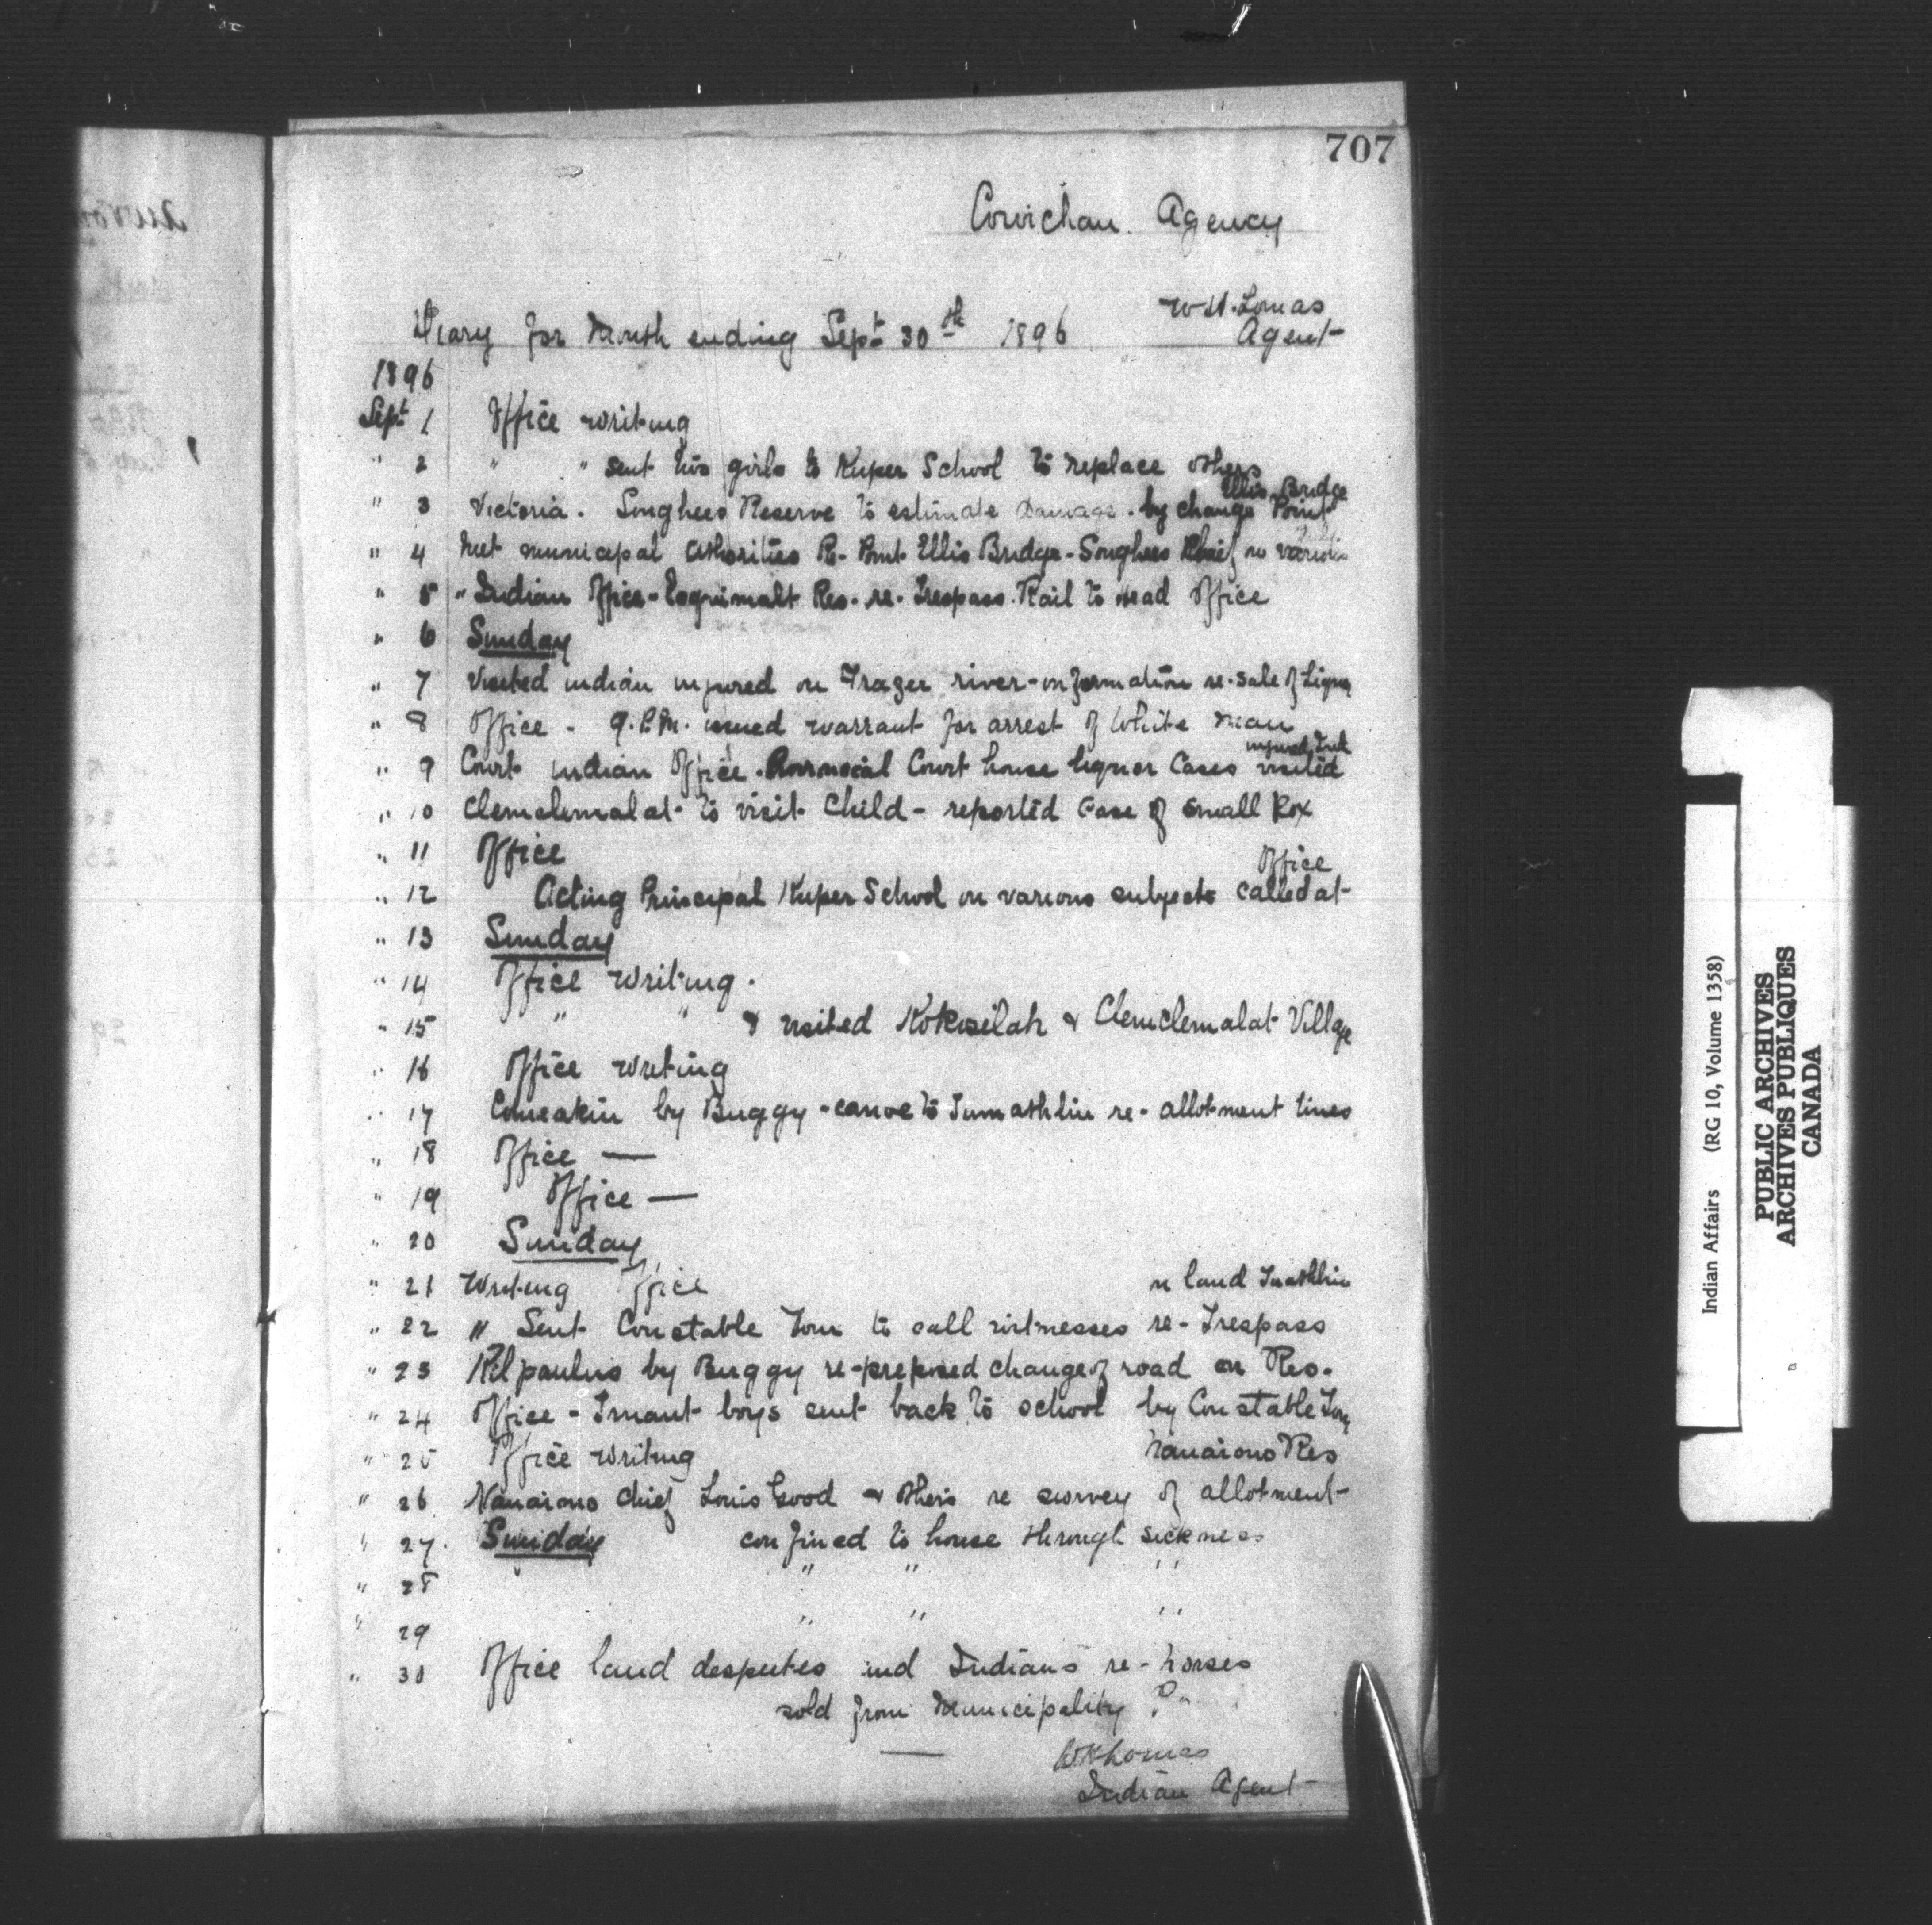 707
Cowichan Agency
W.H. Lomas
Agent
Diary for Month ending Sept 30th 1896
1896
Sept 1 Office writing
" 2 " " sent two girls to Kuper School to replace others
Ellis Bridge
" 3 Victoria. Songhees Reserve to estimate Damage. by change Point
" 4 Met municipal Athorities Re. Point Ellis Bridge - Songhees Chief re various
" 5 " Indian Office - Esquimalt Res. re. Trespass. Rail to Head Office
" 6 Sunday
" 7 Visited indian injured on Frazer river - information re. sale of Liquor
" 8 Office - 9. P.M. issued warrant for arrest of White man
injured Ind
" 9 Court indian Office. Provincial Court house liquor Cases visited
" 10 Clemclemalat to visit Child - reported Case of Small Pox
" 11 Office
Office
" 12 Acting Principal Kuper School on various subjects called at
" 13 Sunday
" 14 Office writing.
" 15 " " & visited Kokosilah & Clemclemalat Village
" 16 Office writing
" 17 Comeakin by Buggy - canoe to re - allotment lines
" 18 Office —
" 19 Office —
" 20 Sunday
" 21 Writing Office
re land
" 22 " Sent Constable Tom to call witnesses re - Trespass
" 23 Kilpaulus by Buggy re - proposed change of road on Res.
" 24 Office - Truant boys sent back to school by Constable Tom
" 25 Office writing
Nanaimo Res
" 26 Nanaimo Chief Louis Good & others re survey of allotment
" 27. Sunday confined to house through sickness
" 28 " " "
" 29 " " "
" 30 Office land desputes ind Indians re - horses
sold from Municipality
—
WH Lomas
Indian Agent
Indian Affairs (RG 10, Volume 1358)
PUBLIC ARCHIVES
ARCHIVES PUBLIQUES
CANADA